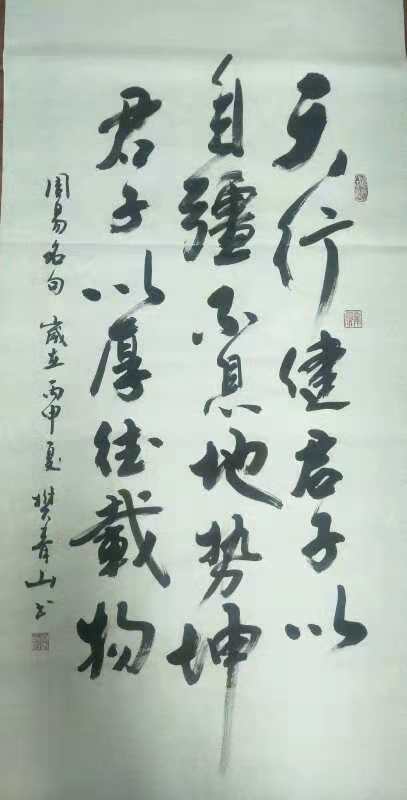 天行健君子以
自彊不息地势坤
君子以厚德载物
周易名句 岁在丙申夏 樊青山书